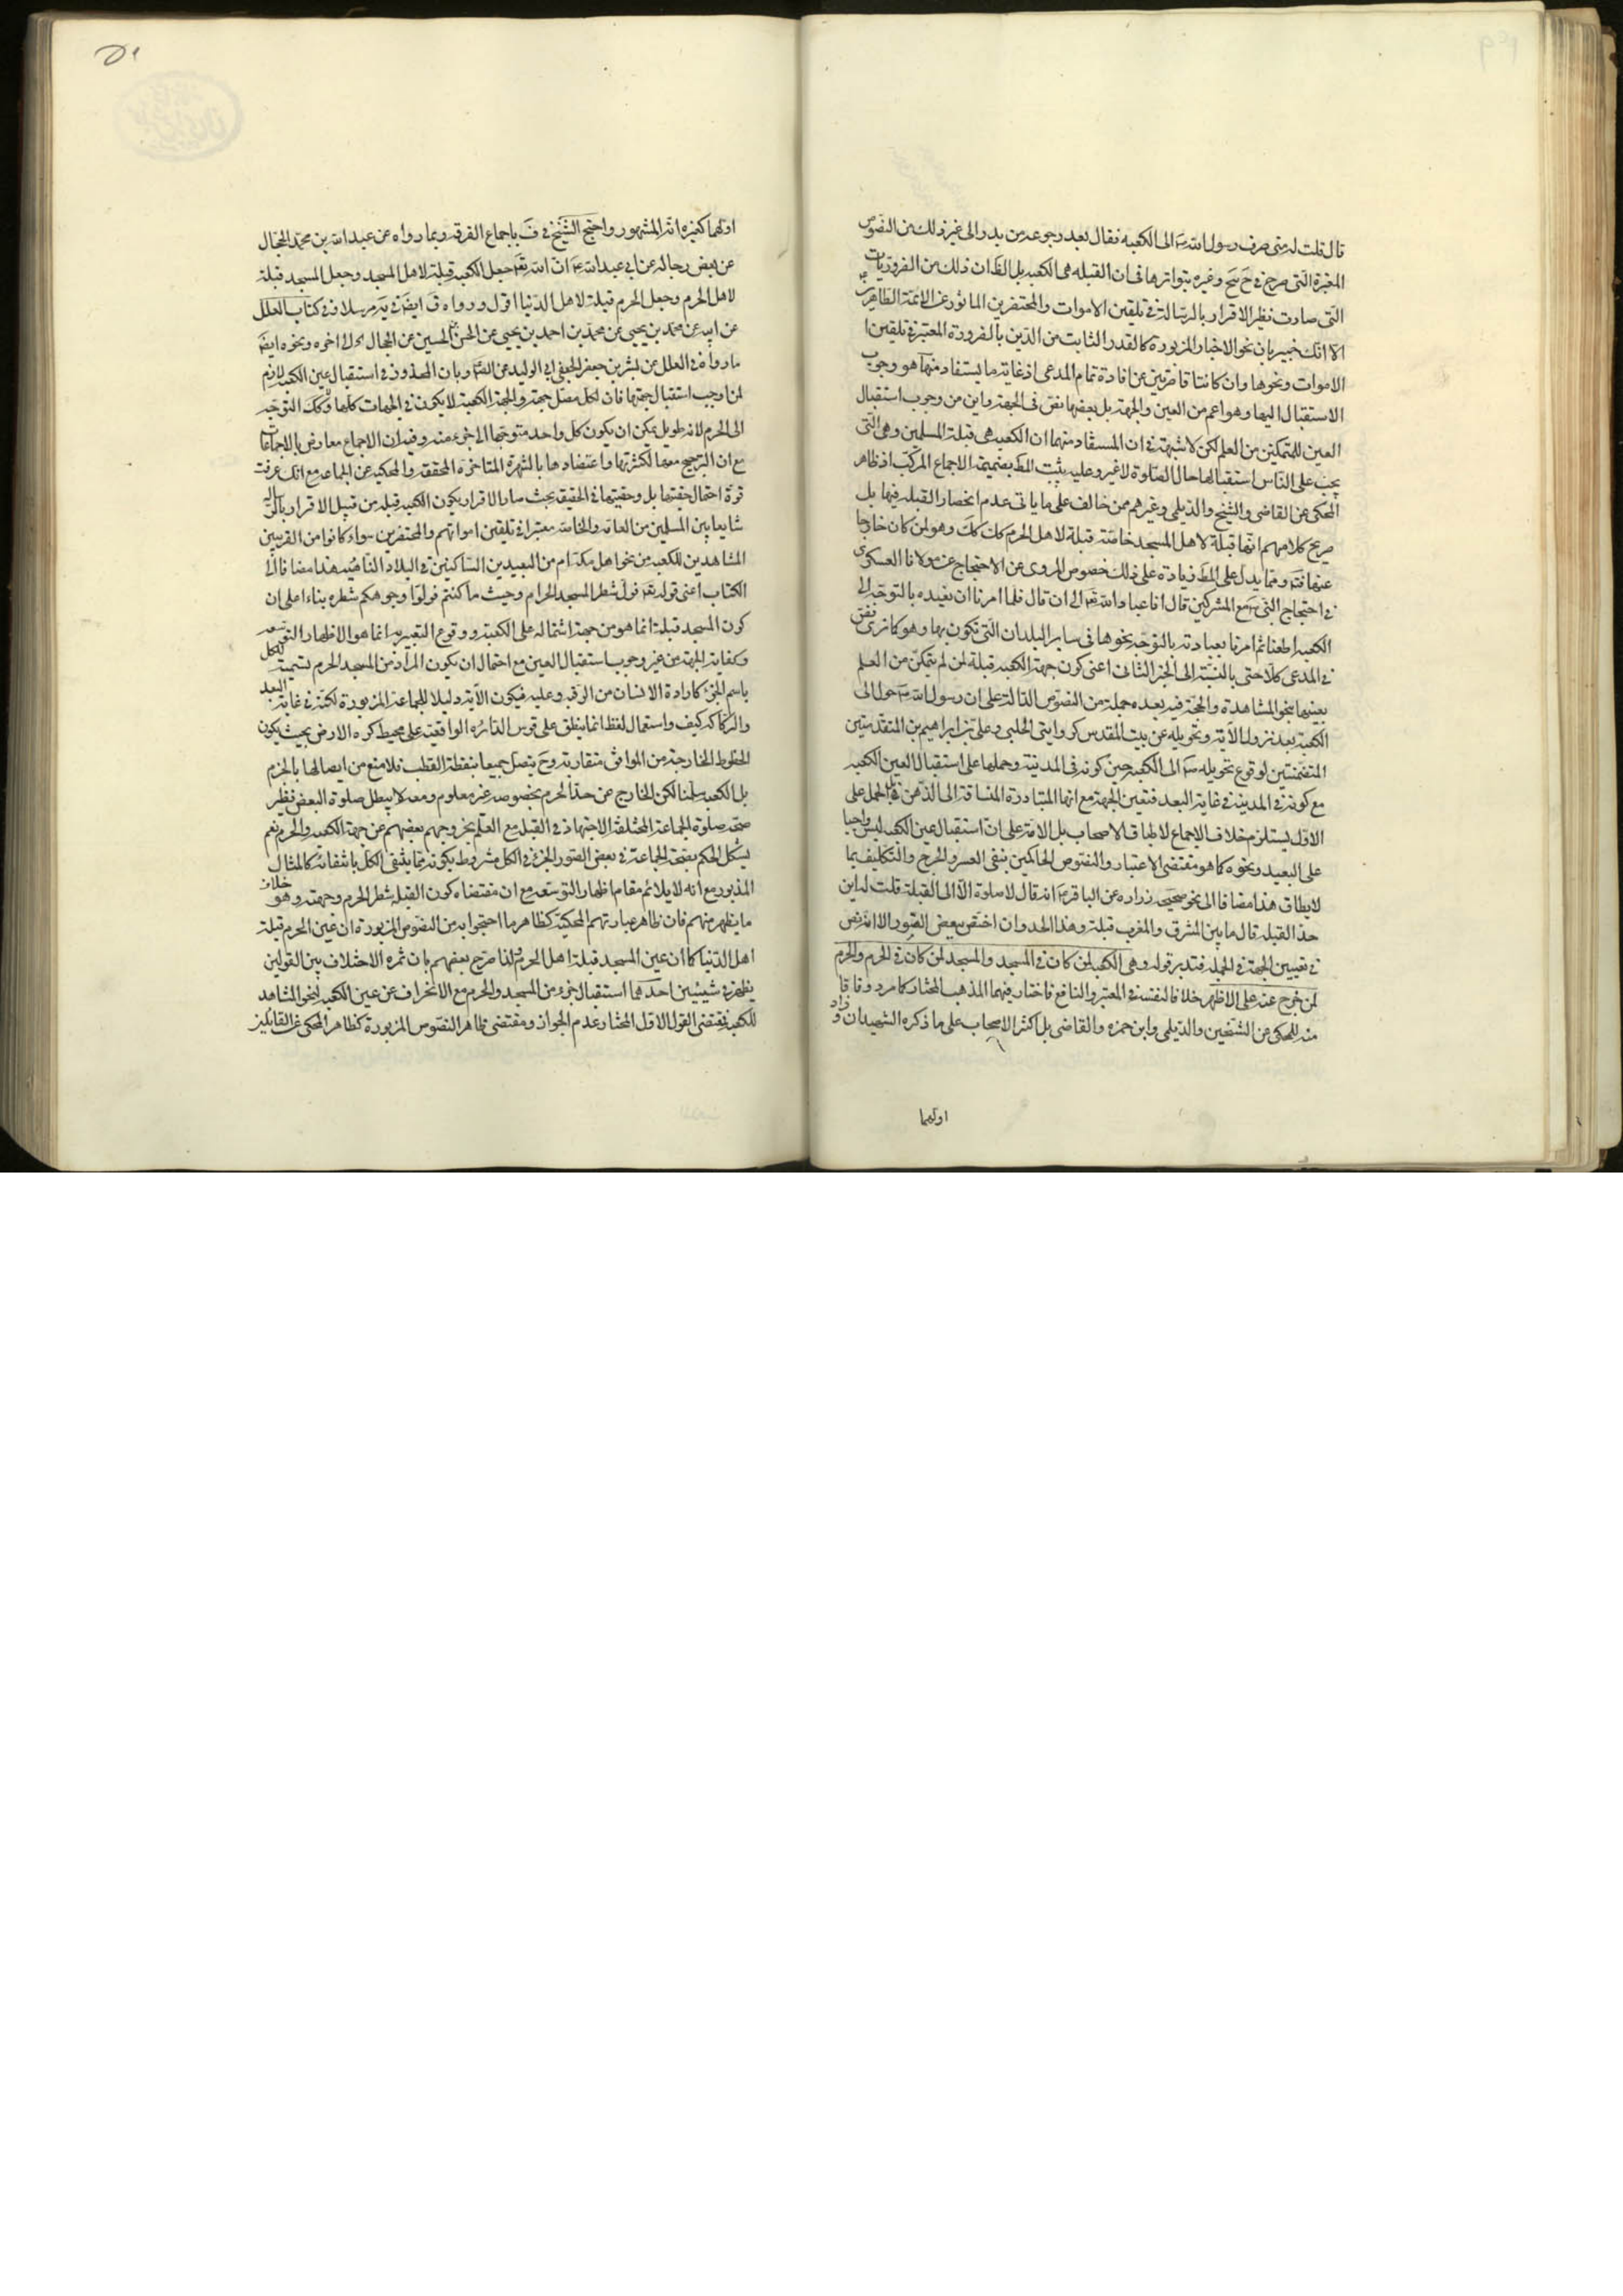 قال قلت له متى صرف رسول الله ص الى الكعبه فقال بعد رجوعه من بدر والى غير ذلك من النصوص
المعتبرة التى صرح فى وغيره بتواترها فى ان القبله هى الكعبه بل الظ ان ذلك من الضروريات
التى صارت نظير الاقرار بالرسالة فى تلقين الاموات والمحتضرين الماثور عن الائمة الطاهرين
الا انك خبير بان نحو الاخبار المزبورة كالقدر الثابت من الدين بالضرورة المعتبر فى تلقين
الاموات ونحوها وان كانتا قاصرتين عن افادة تمام المدعى اذ غاية ما يستفاد منهما هو وجوب
الاستقبال اليها وهو اعم من العين والجهة بل بعضها نص فى الجهة واين من وجوب استقبال
العين للمتمكنين من العلم لكن لا شبهة فى ان المستفاد منهما ان الكعبه هى قبلة المسلمين وهى التى
يجب على الناس استقبالها حال الصلوة لا غير وعليه يثبت المط بضميمة الاجماع المركب اذ ظاهر
المحكى عن القاضى والشيخ والديلمى وغيرهم ممن خالف على ما ياتى عدم انحصار القبله فيها بل
صريح كلامهم انها قبلة لاهل المسجد خاصة قبلة لاهل الحرم كك وهو لمن كان خارجا
عنهما فت ومما يدل على المط زيادة على ذلك خصوص المروى عن الاحتجاج عن مولانا العسكرى
فى احتجاج النبى ص مع المشركين قال انا عباد الله تع الى ان قال فلما امرنا ان نعبده بالتوجه الى
الكعبه اطعنا ثم امرنا بعبادته بالتوجه نحوها فى ساير البلدان التى نكون بها وهو كما ترى نص
فى المدعى كلا حتى بالنسبة الى الجزء الثانى اعنى كون جهة الكعبه قبلة لمن لم يتمكن من العلم
بعينها بنحو المشاهدة والحجة فيه بعده جملة من النصوص الدالة على ان رسول الله ص حول الى
الكعبة بعد نزول الاية وتحويله عن بيت المقدس كروايتى الحلبى وعلى بن ابراهيم المتقدمتين
المتضمنتين لوقوع تحويله ص الى الكعبه حين كونه فى المدينة وحملها على استقبال العين الكعبه
مع كونه فى المدينة فى غاية البعد فتعين الجهة مع انها المتبادرة المنساقة الى الذهن فى الحمل على
الاول يستلزم خلاف الاجماع لاطباق الاصحاب بل الامة على ان استقبال عين الكعبه ليس واجبا
على البعيد ونحوه كما هو مقتضى الاعتبار والنصوص الحاكمين بنفى العسر والحرج والتكليف بما
لا يطاق هذا مضافا الى نحو صحيحة زراره عن الباقر ع انه قال لا صلوة الا الى القبلة قلت له اين
حد القبله قال ما بين المشرق والمغرب قبلة وهذا الحد وان اختص ببعض الصور الا انه نص
فى تعيين الجهة فى الجمله فتدبر قوله وهى الكعبه لمن كان فى المسجد والمسجد لمن كان فى الحرم والحرم
لمن خرج عنه على الاظهر خلافا لنفسه فى المعتبر والنافع فاختار فيهما المذهب المختار كما مر وفاقا
منه للمحكى عن الشيخين والديلمى وابن حمزه والقاضى بل اكثر الاصحاب على ما ذكره الشهيدان وزاد
اولهما
اولهما كغيره انه المشهور واحتج الشيخ فى ف باجماع الفرقه وبما رواه عن عبد الله بن محمد الحجال
عن بعض رجاله عن ابى عبد الله ع ان الله تع جعل الكعبه قبلة لاهل المسجد وجعل المسجد قبلة
لاهل الحرم وجعل الحرم قبلة لاهل الدنيا اقول ورواه ق ايضا فى يه مرسلا وفى كتاب العلل
عن ابيه عن محمد بن يحيى عن محمد بن احمد بن يحيى عن الحسن بن الحسين عن الحجال الى اخره ونحوه ايضا
ما رواه فى العلل عن بشر بن جعفر الجعفى ابى الوليد عن الص وبان المحذور فى استقبال عين الكعبه لازم
لمن اوجب استقبال جهتها فان لكل مصل جهة والجهة الكعبة لا يكون فى الجهات كلها وكك التوجه
الى الحرم لانه طويل يمكن ان يكون كل واحد متوجها الى جزء منه وفيه ان الاجماع معارض بالاجماعات
مع ان الترجيح معها لكثرتها واعتضادها بالشهرة المتاخره المحققه والمحكيه عن الجماعه مع انك عرفت
قوة احتمال حقيتها بل وحقيتها فى الحقيقة بحيث صار الاقرار بكون الكعبه قبلة من قبيل الاقرار بالرسالة
شايعا بين المسلمين من العامه والخاصه معتبرا فى تلقين امواتهم والمحتضرين سواء كانوا من القريبين
المشاهدين للكعبه من نحو اهل مكه ام من البعيدين الساكنين فى البلاد النائيه هذا مضافا الى
الكتاب اعنى قوله تع فول شطر المسجد الحرام وحيث ما كنتم فولوا وجوهكم شطره بناءا على ان
كون المسجد قبلة انما هو من جهة اشتماله على الكعبه ووقوع التعبير به انما هو الاظهار التوسعه
وكفاية الجهة من غير وجوب استقبال العين مع احتمال ان يكون المراد من المسجد الحرم تسمية للكل
باسم الجزء كارادة الانسان من الرقبه وعليه فيكون الاية دليلا للجماعة المزبورة لكنه فى غاية البعد
والركاكه كيف واستعمال لفظ انما ينطق على قوس الدائره الواقعة على محيط كره الارض بحيث يكون
الخطوط الخارجة من المواقف متقاربة وح يتصل جميعا بنقطة القطب فلا منع من ايصالها بالحرم
بل الكعبه سلمنا لكن الخارج عن حد الحرم بخصوصه غير معلوم ومعه لا يبطل صلوة البعض نظير
صحة صلوة الجماعة المختلفة الاجتهاد فى القبلة مع العلم بخروجهم بعضهم عن جهة الكعبه والحرم نعم
يشكل الحكم بصحة الجماعة فى بعض الصور الجزء فى الكل مشروط بكونه مما ينتفى الكل بانتفائه كالمثال
المذبور مع انه لا يلائم مقام اظهار التوسعه مع ان مقتضاه كون القبله شطر الحرم وجهته وهو خلاف
ما يظهر منهم فان ظاهر عبارتهم المحكية كظاهر ما احتجوا به من النصوص المزبورة ان عين الحرم قبلة
اهل الدنيا كما ان عين المسجد قبلة اهل الحرم ولذا صرح بعضهم بان ثمره الاختلاف بين القولين
يظهر فى شيئين احدهما استقبال جزء من المسجد والحرم مع الانحراف عن عين الكعبه لنحو المشاهد
للكعبه فمقتضى القول الاول المختار عدم الجواز ومقتضى ظاهر النصوص المزبورة كظاهر المحكى عن القائلين